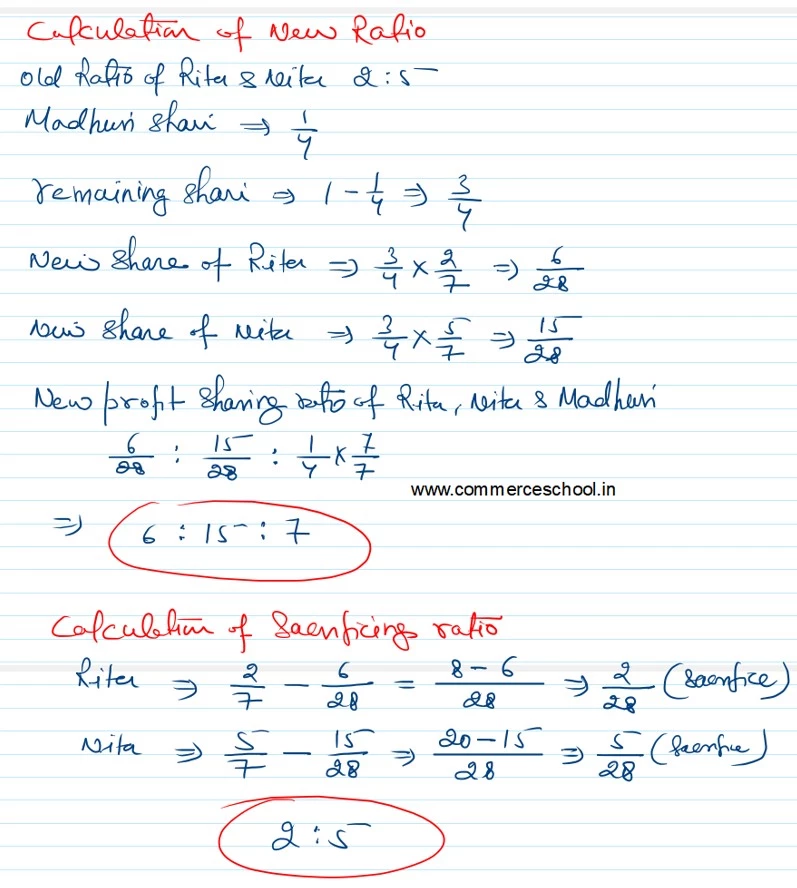 Calculation of New Ratio
Old Ratio of Rita & Nita 2 : 5
Madhuri Share ⇒ 1/4
remaining Share ⇒ 1 - 1/4 ⇒ 3/4
New Share of Rita ⇒ 3/4 × 2/7 ⇒ 6/28
New Share of Nita ⇒ 3/4 × 5/7 ⇒ 15/28
New profit Sharing ratio of Rita, Nita & Madhuri
6/28 : 15/28 : 1/4 × 7/7
www.commerceschool.in
⇒ 6 : 15 : 7
Calculation of Sacrificing ratio
Rita ⇒ 2/7 - 6/28 = 8 - 6/28 ⇒ 2/28 (Sacrifice)
Nita ⇒ 5/7 - 15/28 ⇒ 20 - 15/28 ⇒ 5/28 (Sacrifice)
2 : 5